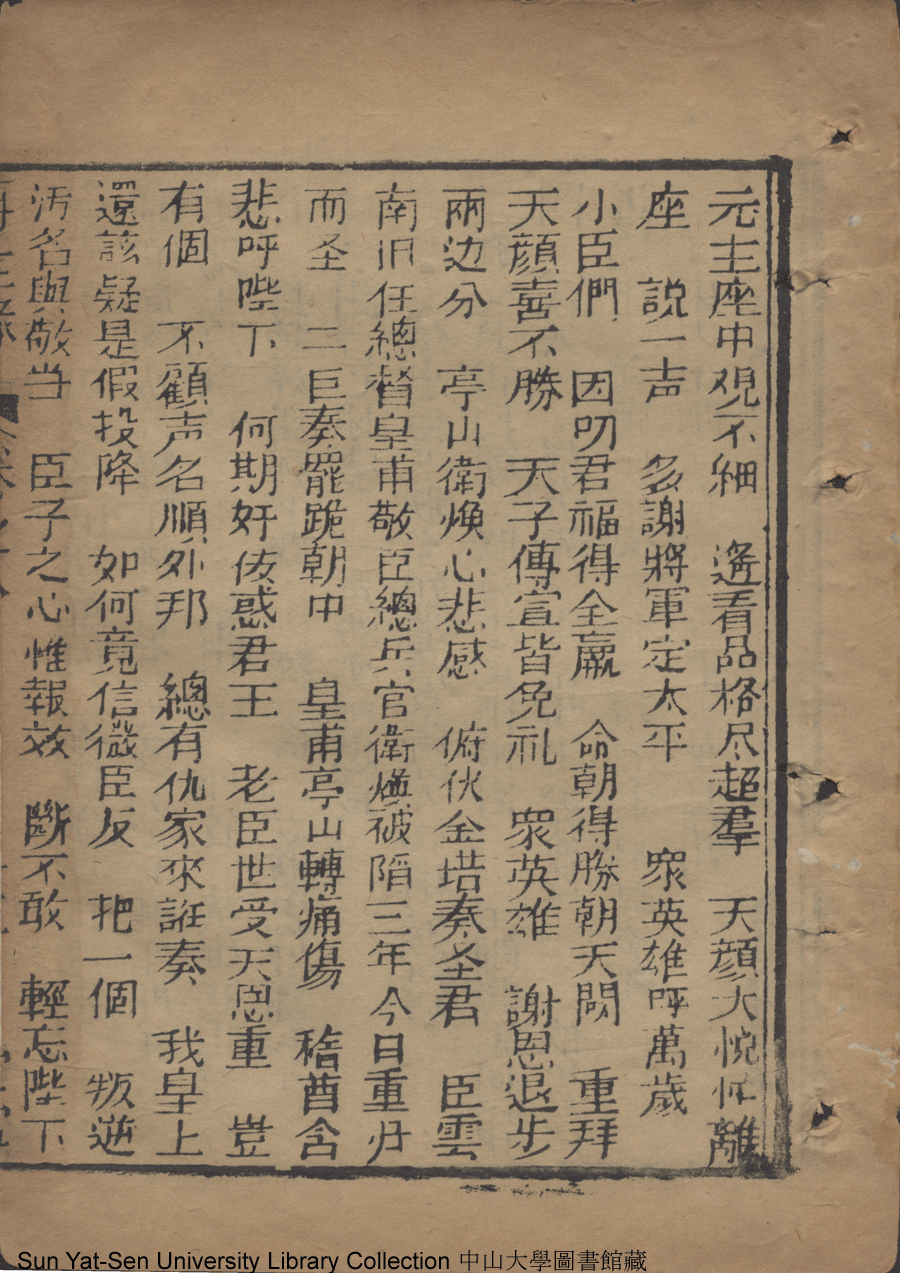 元主座中观不細　遙看品格尽超羣　天顔大悅忙離
座　説一声　多謝將軍定太平　衆英雄呼萬歲
小臣們　因叨君福得全羸　命朝得勝朝天闕　重拜
天顔喜不勝　天子傳宣皆免礼　衆英雄　謝恩退步
兩边分　亭山衛煥心悲感　俯伏金堦奏圣君　臣雲
南旧任總督皇甫敬臣總兵官衛煥破陷三年今日重归
而圣　二巨奏罷跪朝中　皇甫亭山轉痛傷　稽首含
悲呼陛下　何期奸佞惑君王　老臣世受天恩重　豈
有個　不顧声名順外邦　總有仇家來誑奏　我皇上
還該疑是假投降　如何竟信微臣反　把一個　叛逆
汚名與敬当　臣子之心惟報效　斷不敢　輕忘陛下
Sun Yat-Sen University Library Collection 中山大學圖書館藏